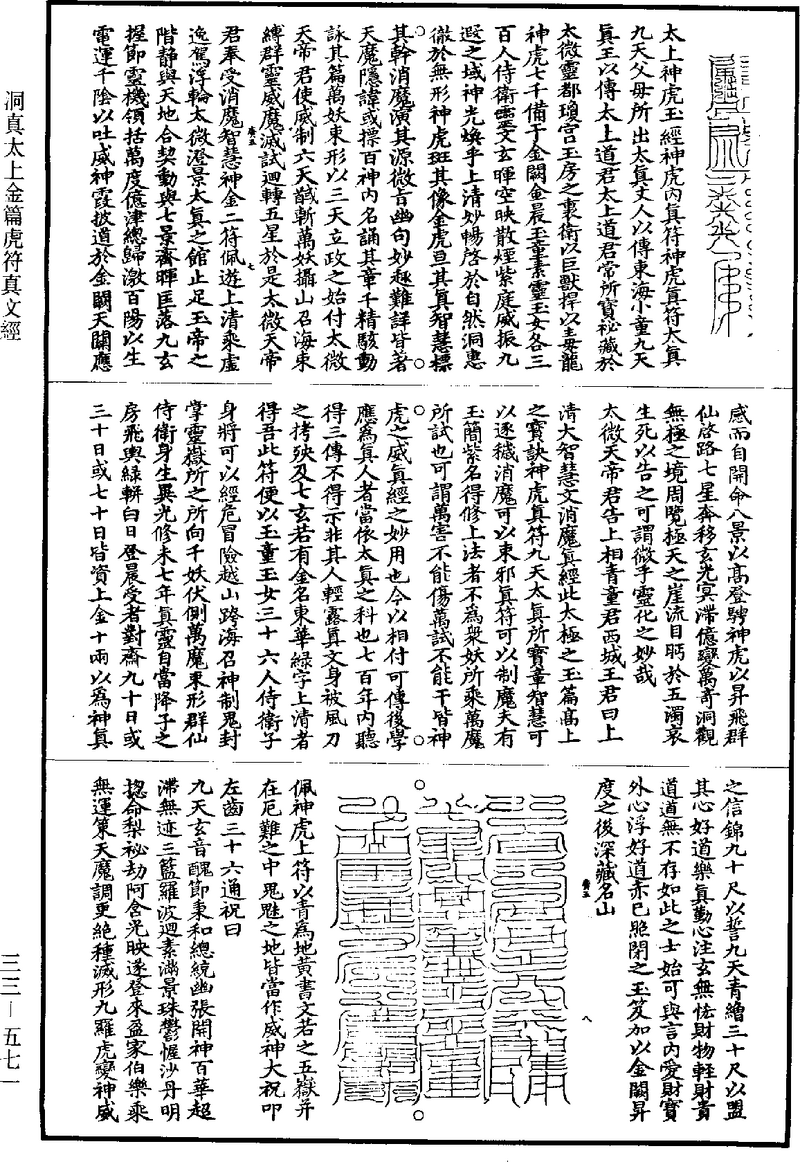 太上神虎玉經神虎內真符神虎真符太真
九天父母所出太真丈人以傳東海小童九天
真王以傳太上道君太上道君常所寶祕藏於
太微靈都瓊宮玉房之裏衛以巨獸捍以毒龍
神虎七千備于金闕金晨玉童素靈玉女各三
百人侍衛靈文玄暉空映散煙紫庭威振九
遐之域神光煥乎上清妙暢啓於自然洞惠
徹於無形神虎斑其像金虎亘其真智慧標
其幹消魔演其源微旨幽句妙趣難詳皆著
天魔隱諱或標百神內名誦其章千精駭動
詠其篇萬妖束形以三天立政之始付太微
天帝君使威制六天馘斬萬妖攝山召海束
縛群靈威魔滅試迴轉五星於是太微天帝
君奉受消魔智慧神金二符佩遊上清乘虛
逸駕浮輪太微澄景太真之館止足玉帝之
階靜與天地合契動與七景齊暉匡落九玄
握節靈機領括萬度億津總歸激百陽以生
電運千陰以吐威神霞披道於金闕天關應
感而自開命八景以高登騁神虎以昇飛群
仙啓路七星奔移玄光冥滯億變萬奇洞觀
無極之境周覽極天之崖流目眄於五濁哀
生死以告之可謂微乎靈化之妙哉
太微天帝君告上相青童君西城王君曰上
清大智慧文消魔真經此太極之玉篇高上
之寶訣神虎真符九天太真所寶童智慧可
以逐穢消魔可以束邪真符可以制魔夫有
玉簡紫名得修上法者不為衆妖所乘萬魔
所試也可謂萬害不能傷萬試不能干皆神
虎之威真經之妙用也今以相付可傳後學
應為真人者當依太真之科也七百年內聽
得三傳不得示非其人輕露真文身被風刀
之拷殃及七玄若有金名東華綠字上清者
得吾此符便以玉童玉女三十六人侍衛子
身將可以經危冒險越山跨海召神制鬼封
掌靈嶽所之所向千妖伏側萬魔束形群仙
侍衛身生異光修未七年真靈自當降子之
房飛輿綠軿白日登晨受者對齋九十日或
三十日或七十日皆資上金十兩以為神真
之信錦九十尺以誓九天青繒三十尺以盟
其心好道樂真勤心注玄無恡財物輕財貴
道道無不存如此之士始可與言內愛財寶
外心浮好道赤巳照閉之玉笈加以金闕昇
度之後深藏名山
佩神虎上符以青為地黃書文若之五嶽并
在厄難之中鬼魅之地皆當作威神大祝叩
左齒三十六通祝曰
九天玄音醜節東和總統幽張開神百華超
滯無迹三籃羅波迴素滿景珠鬱幄沙丹明
揔命梨祕劫阿會光映遂登來盈家伯樂乘
無運策天魔調更絕種滅形九羅虎變神威
洞真太上金篇虎符真文經
三三－五七一